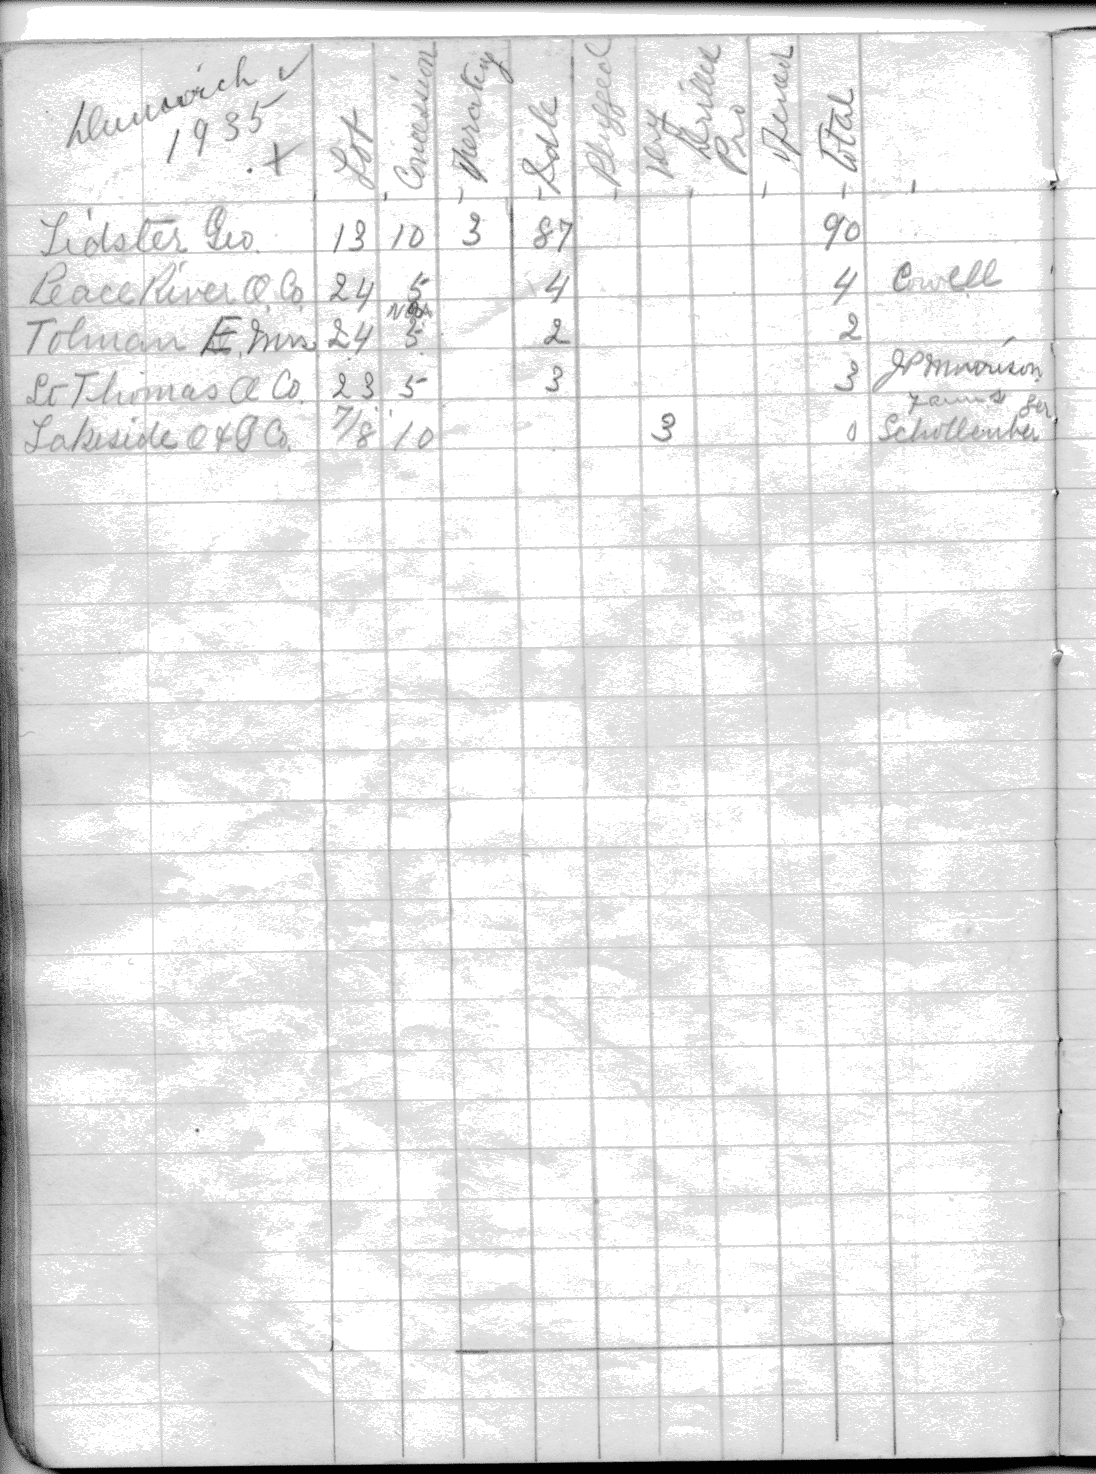 Dunwich ✓
1935
. X
Lot
Concession
- Operating
- Idle
- Plugged
Dry
Drilled
Pro
-
- Total
Lidster Geo. 13 10 3 87 90
Peace River O. Co 24 5 4 4 Cowell
Tolman E. Mrs. 24 5 2 2
St Thomas O Co. 23 5 3 3 J P Morrison
Lakeside O & G Co. 7/8 10 3 0 Schollenber
ger